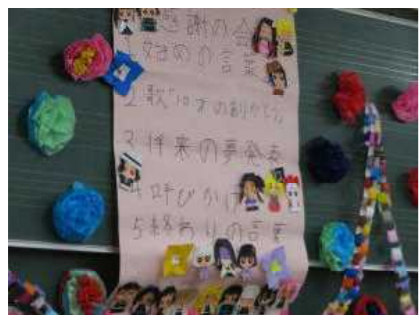 感謝の会
1 始めの言葉
2.歌"10才のありがとう
3 将来の夢発表
4 呼びかけ
5 終わりの言葉